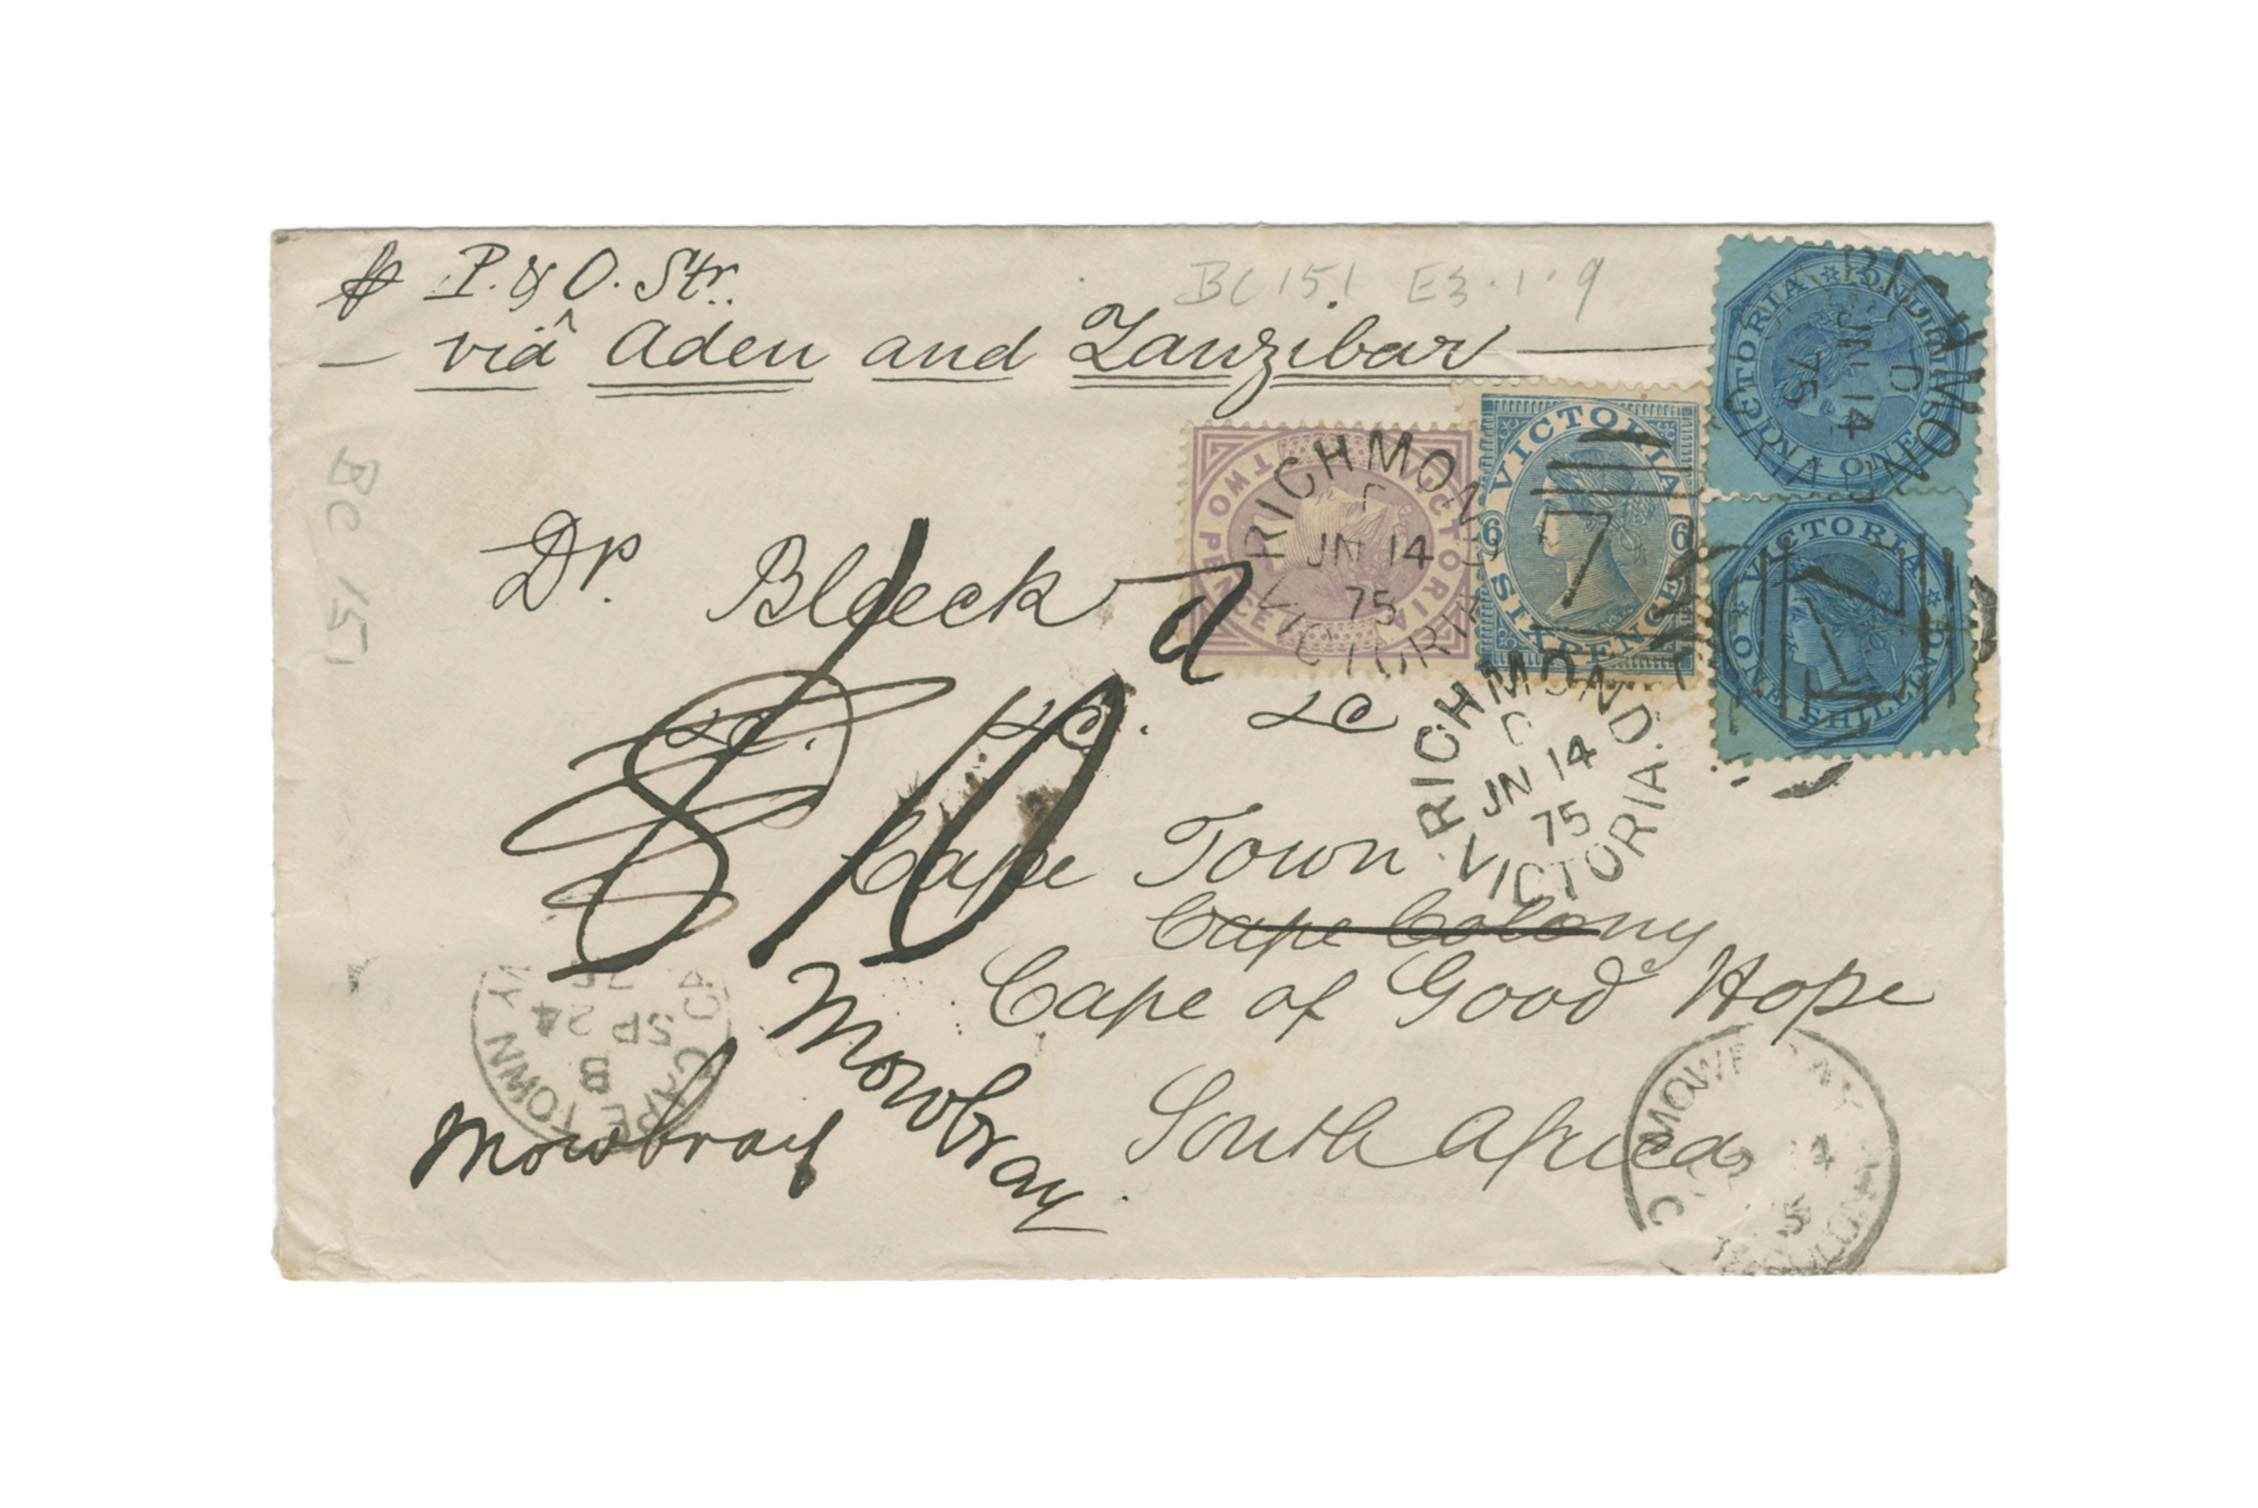 p P. & O. Str.
BC 151 E3.1.9
— viâ Aden and Zanzibar —
BC 151
Dr. Bleeck
&c. &c. &c
Cape Town
Cape Colony
Cape of Good Hope
South Africa
Mowbray
Mowbray
VICTORIA
TWO PENCE
VICTORIA
6 6
SIX PENCE
VICTORIA
ONE SHILLING
VICTORIA
ONE SHILLING
RICHMOND
JN 14
75
VICTORIA
RICHMOND
D
JN 14
75
VICTORIA
RICHMOND
D
JN 14
75
VICTORIA
CAPE TOWN
B
SP 24
75